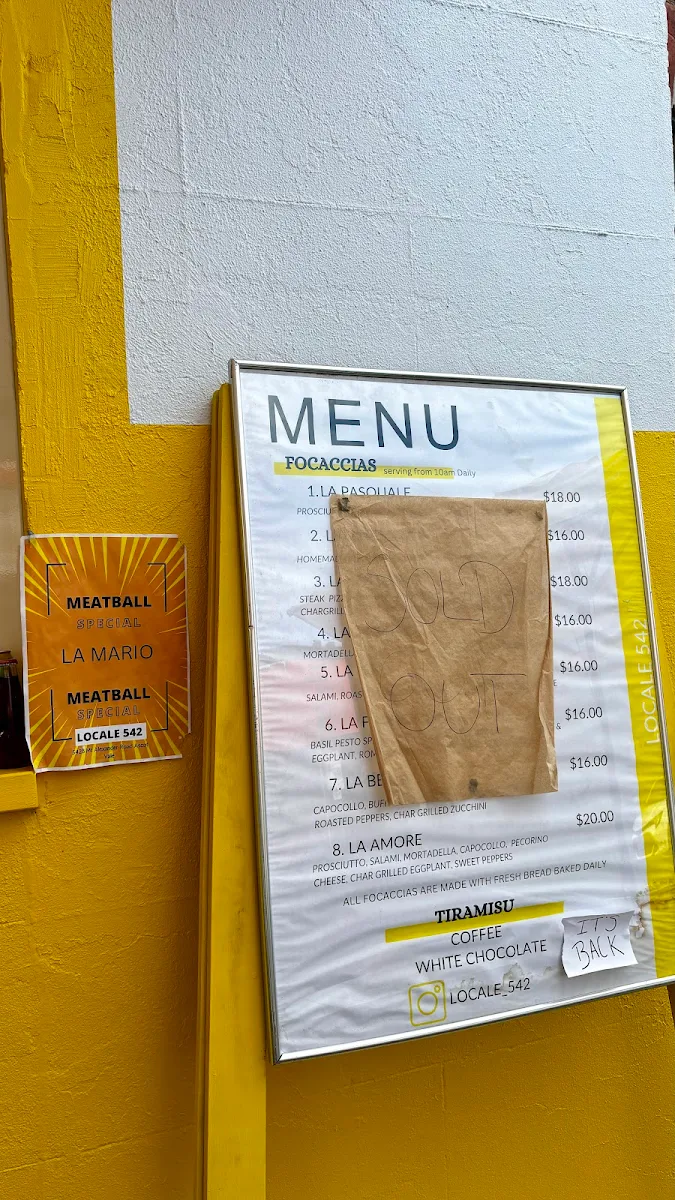 MEATBALL
SPECIAL
LA MARIO
MEATBALL
SPECIAL
LOCALE 542
MENU
FOCACCIAS serving from 10am Daily
1. LA PASQUALE $18.00
2. $16.00
3. LA $18.00
STEAK
4. LA $16.00
5. LA $16.00
SALAMI,
6. LA $16.00
BASIL PESTO
EGGPLANT,
&
7. LA $16.00
CAPOCOLLO,
ROASTED PEPPERS, CHAR GRILLED ZUCCHINI
8. LA AMORE $20.00
PROSCIUTTO, SALAMI, MORTADELLA, CAPOCOLLO, PECORINO
CHEESE, CHAR GRILLED EGGPLANT, SWEET PEPPERS
ALL FOCACCIAS ARE MADE WITH FRESH BREAD BAKED DAILY
SOLD
OUT
TIRAMISU
COFFEE
WHITE CHOCOLATE
IT'S
BACK
LOCALE_542
LOCALE 542